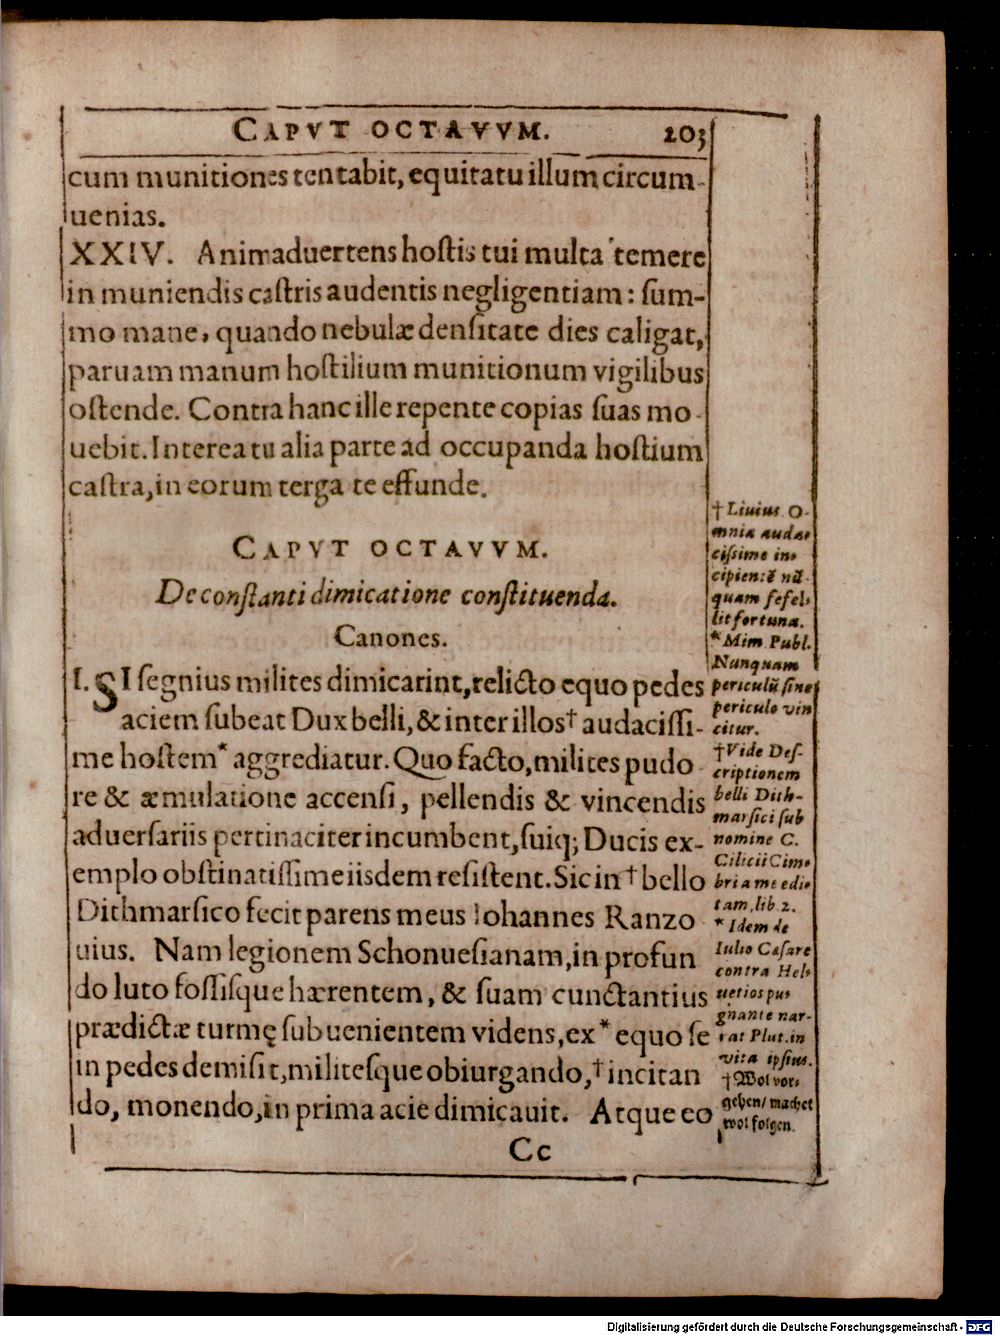 CAPVT OCTAVVM. 203
cum munitiones tentabit, equitatu illum circum-
uenias.
XXIV. Animaduertens hostis tui multa temere
in muniendis castris audentis negligentiam: sum-
mo mane, quando nebulæ densitate dies caligat,
paruam manum hostilium munitionum vigilibus
ostende. Contra hanc ille repente copias suas mo-
uebit. Interea tu alia parte ad occupanda hostium
castra, in eorum terga te effunde.
CAPVT OCTAVVM.
De constanti dimicatione constituenda.
Canones.
I. SI segnius milites dimicarint, relicto equo pedes
aciem subeat Dux belli, & inter illos † audacissi-
me hostem * aggrediatur. Quo facto, milites pudo
re & æmulatione accensi, pellendis & vincendis
aduersariis pertinaciter incumbent, suiq; Ducis ex-
emplo obstinatissime iisdem resistent. Sic in † bello
Dithmarsico fecit parens meus Iohannes Ranzo
uius. Nam legionem Schonuesianam, in profun
do luto fossisque hærentem, & suam cunctantius
prædictæ turmę subuenientem videns, ex * equo se
in pedes demisit, militesque obiurgando, † incitan
do, monendo, in prima acie dimicauit. Atque eo
Cc
† Liuius O-
mnia auda-
cissime in-
cipientē nū-
quam fefel-
lit fortuna.
* Mim Publ.
Nunquam
periculū sine
periculo vin
citur.
† Vide Des-
criptionem
belli Dith-
marsici sub
nomine C.
Cilicii Cim-
bri a me edi-
tam, lib. 2.
* Idem de
Iulio Cæsare
contra Hel-
uetios pu-
gnante nar-
rat Plut. in
vita ipsius.
† Wol vor-
gehen/ machet
wol folgen.
Digitalisierung gefördert durch die Deutsche Forschungsgemeinschaft - DFG